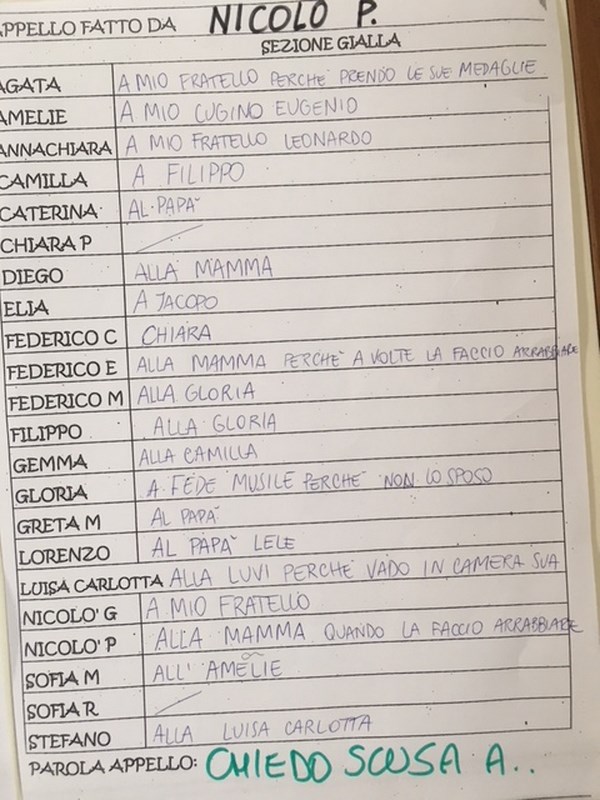 APPELLO FATTO DA NICOLO P.
SEZIONE GIALLA
AGATA A MIO FRATELLO PERCHE' PRENDO LE SUE MEDAGLIE
AMELIE A MIO CUGINO EUGENIO
ANNACHIARA A MIO FRATELLO LEONARDO
CAMILLA A FILIPPO
CATERINA AL PAPA'
CHIARA P
DIEGO ALLA MAMMA
ELIA A JACOPO
FEDERICO C CHIARA
FEDERICO E ALLA MAMMA PERCHE' A VOLTE LA FACCIO ARRABBIARE
FEDERICO M ALLA GLORIA
FILIPPO ALLA GLORIA
GEMMA ALLA CAMILLA
GLORIA A FEDE MUSILE PERCHE' NON LO SPOSO
GRETA M AL PAPA'
LORENZO AL PAPA' LELE
LUISA CARLOTTA ALLA LUVI PERCHE' VADO IN CAMERA SUA
NICOLO' G A MIO FRATELLO
NICOLO' P ALLA MAMMA QUANDO LA FACCIO ARRABBIARE
SOFIA M ALL' AMELIE
SOFIA R
STEFANO ALLA LUISA CARLOTTA
PAROLA APPELLO: CHIEDO SCUSA A..